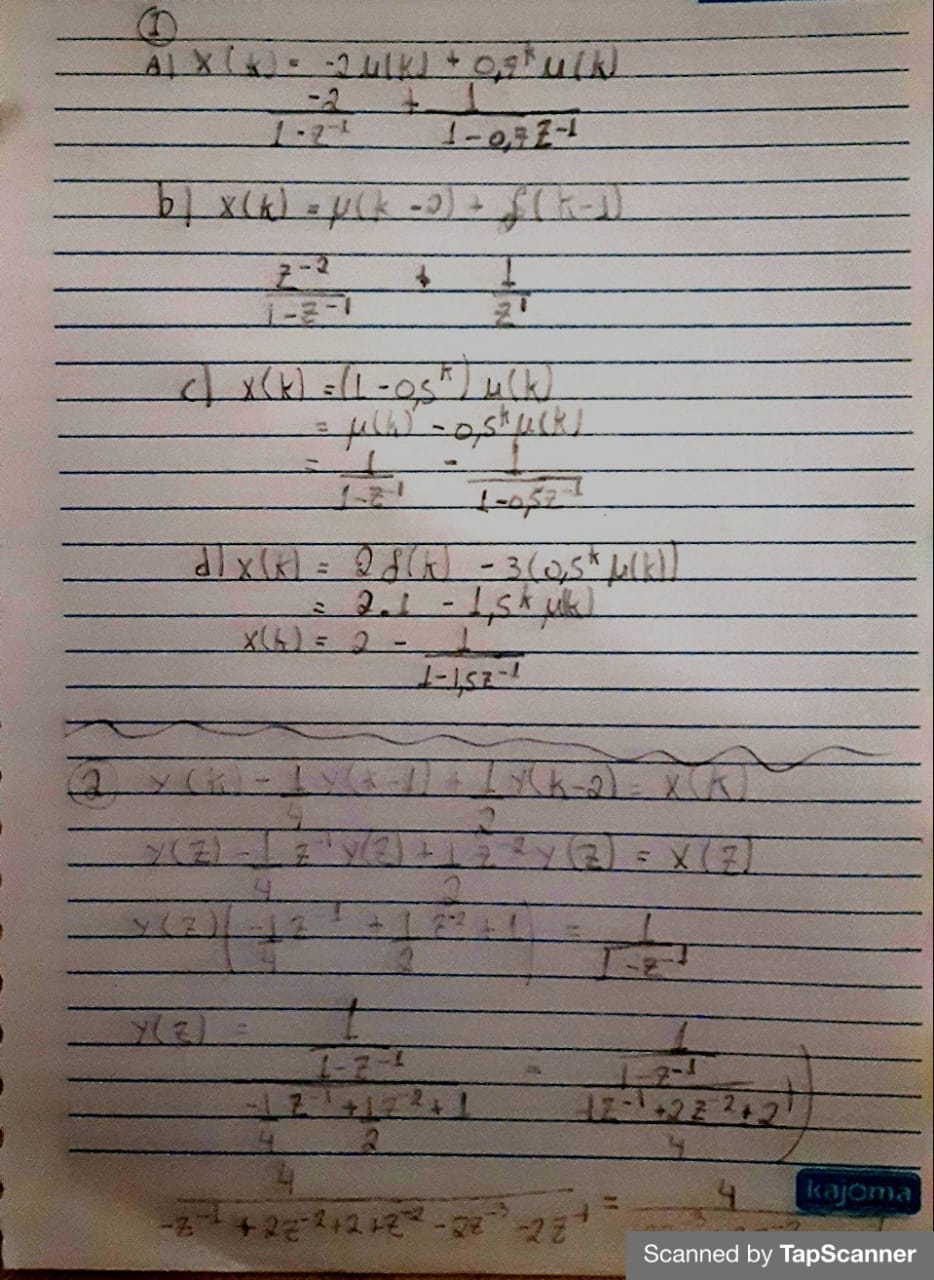 ①
A) x(k) = -2μ(k) + 0,7^k μ(k)
-2/(1-z^-1) + 1/(1-0,7z^-1)
b) x(k) = μ(k-2) + δ(k-1)
z^-2/(1-z^-1) + 1/z^1
c) x(k) = (1-0,5^k) μ(k)
= μ(k) - 0,5^k μ(k)
= 1/(1-z^-1) - 1/(1-0,5z^-1)
d) x(k) = 2δ(k) - 3(0,5^k μ(k))
= 2.1 - 1,5^k μ(k)
x(k) = 2 - 1/(1-1,5z^-1)
② y(k) - 1/4 y(k-1) + 1/2 y(k-2) = x(k)
y(z) - 1/4 z^-1 y(z) + 1/2 z^-2 y(z) = x(z)
y(z)(-1/4 z^-1 + 1/2 z^-2 + 1) = 1/(1-z^-1)
y(z) = (1/(1-z^-1))/(-1/4 z^-1 + 1/2 z^-2 + 1) = (1/(1-z^-1))/((1z^-1+2z^-2+2)/4)
4/(-z^-1+2z^-2+2+z^-2-2z^-3-2z^-1) = 4
kajoma
Scanned by TapScanner